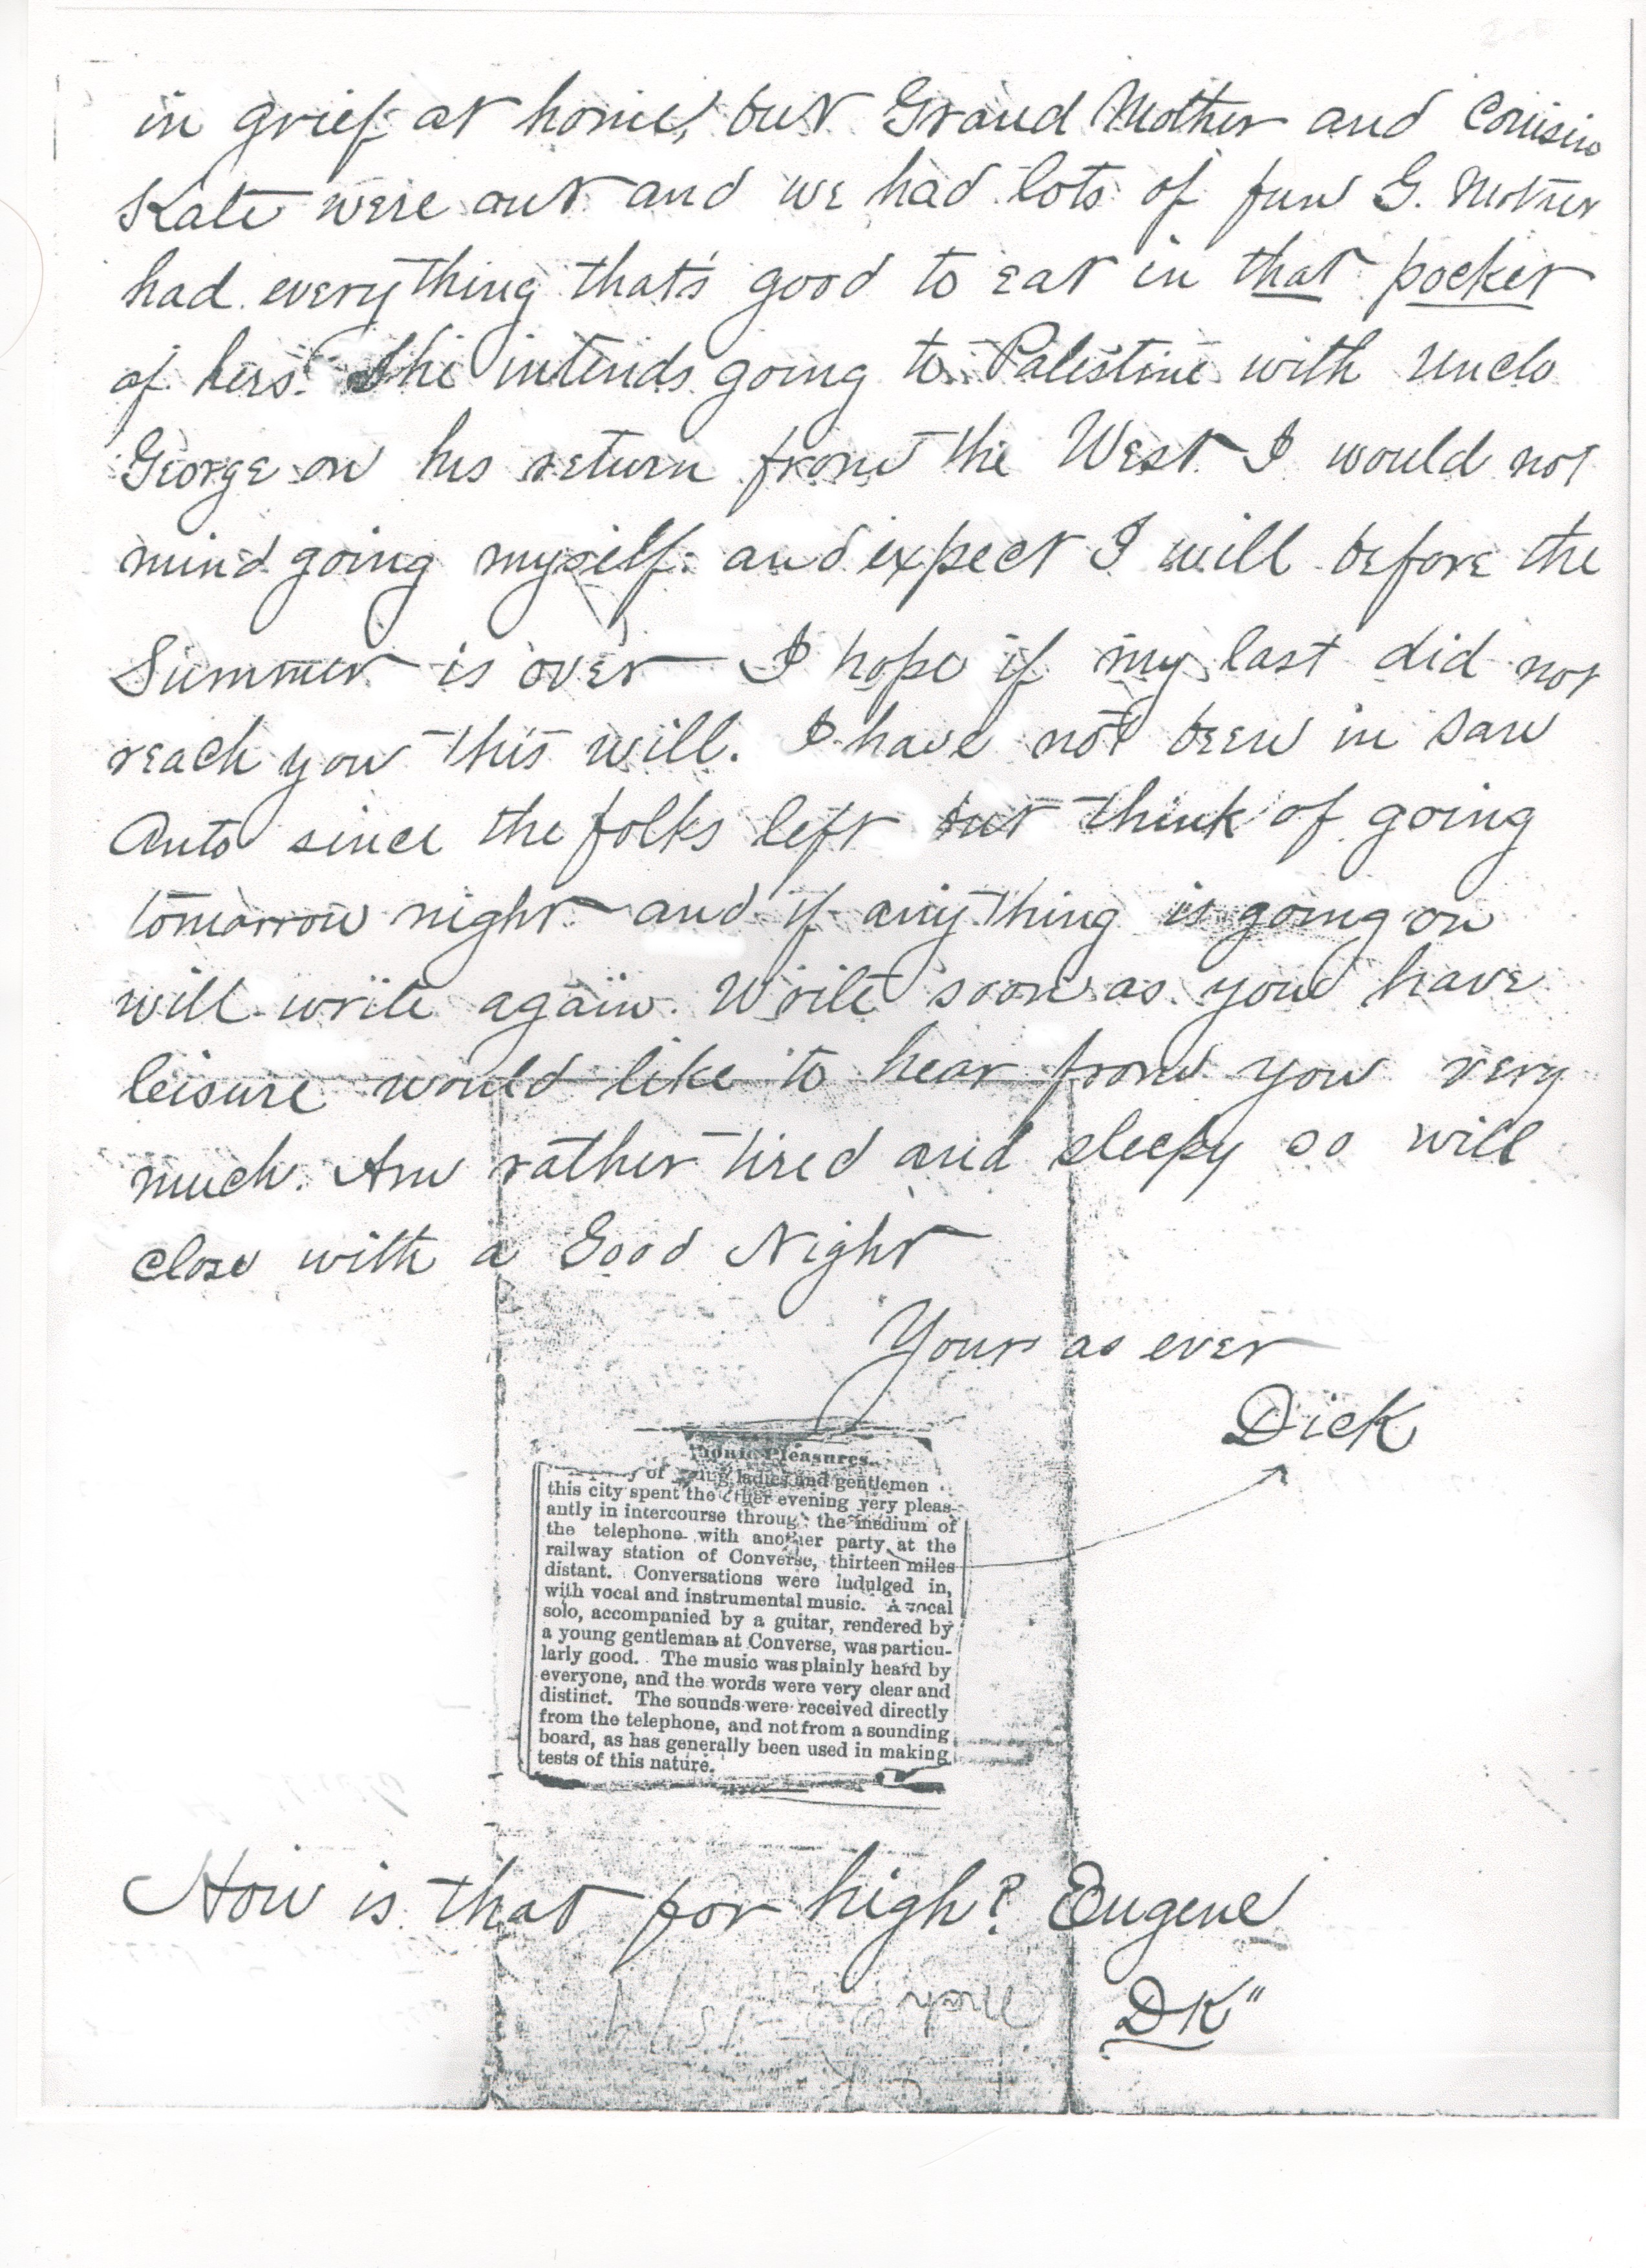 in grief at home, but Grand Mother and Cousin
Kate were out and we had lots of fun G. Mother
had everything that's good to eat in that pocket
of hers. She intends going to Palestine with Uncle
George on his return from the West I would not
mind going myself. and expect I will before the
Summer is over — I hope if my last did not
reach you this will. I have not been in San
Anto since the folks left but think of going
tomorrow night and if anything is going on
will write again. Write soon as you have
leisure would like to hear from you very
much. Am rather tired and sleepy so will
close with a Good Night
Your as ever
Dick
Pleasures.
of young ladies and gentlemen
this city spent the other evening very pleas-
antly in intercourse through the medium of
the telephone with another party at the
railway station of Converse, thirteen miles
distant. Conversations were indulged in,
with vocal and instrumental music. A vocal
solo, accompanied by a guitar, rendered by
a young gentleman at Converse, was particu-
larly good. The music was plainly heard by
everyone, and the words were very clear and
distinct. The sounds were received directly
from the telephone, and not from a sounding
board, as has generally been used in making
tests of this nature.
How is that for high? Eugene
DK"